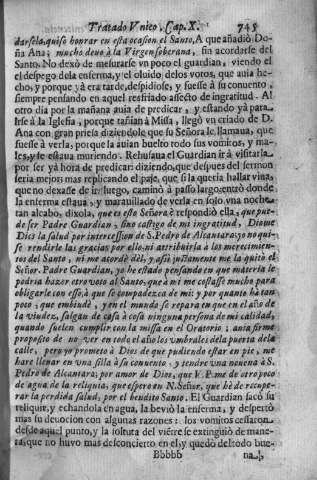 Tratado Vnico, Cap. X. 745
darsela, quiso honrar en esta ocasion el Santo, A que añadió Do-
ña Ana; mucho devo à la Virgen soberana, sin acordarse del
Santo. No dexò de mesurarse vn poco el guardian, viendo el
el despego dela enferma, y el oluido delos votos, que auia he-
cho, y porque yà era tarde, despidiose, y fuesse à su conuento,
siempre pensando en aquel resfriado afecto de ingratitud. Al
otro dia por la mañana auia de predicar, y estando yà para
Irse à la Iglesia, porque tañian à Missa, llegò vn criado de D.
Ana con gran priesa diziendole que su Señora le llamaua, que
fuesse à verla, porque la auian buelto todo sus vomitos, y ma-
les, y se estaua muriendo. Rehusaua el Guardian ir à visitarla
por ser yà hora de predicar; diziendo, que despues del sermon
seria mejor; mas replicando el page, que si la queria hallar viva,
que no dexasse de ir luego, caminò à passo largo, entrò donde
la enferma estaua, y marauillado de verla en solo vna noche
tan alcabo, dixola, que es esto Señora? respondiò ella, que pue-
de ser Padre Guardian, sino castigo de mi ingratitud, Diome
Dios la salud por intercession de S. Pedro de Alcantara, yo no qui-
se rendirle las gracias por ello, ni atribuirla à los merecimien-
tos del Santo, ni me acordè dèl, y assi justamente me la quitò el
Señor. Padre Guardian, yo he estado pensando en que materia le
podria hazer otro voto al Santo, que à mi me costasse mucho para
obligarle con esso, à que se compadezca de mi; y por quanto ha tan
poco, que embiudè, y en el mundo se repara en que en el año de
la viudez, salgan de casa à cosa ninguna persona de mi calidad,
quando suelen cumplir con la missa en el Oratorio; auia firme
proposito de no ver en todo el año los vmbrales dela puerta dela
calle, pero yo prometo à Dios de que pudiendo estar en pie, me
hare llenar en vna silla à su conuento, y tendre vna nouena à S.
Pedro de Alcantara; por amor de Dios, que V. P. me dè otro poco
de agua de la reliquia, que espero en N. Señor, que hè de recupe-
rar la perdida salud, por el bendito Santo. El Guardian sacò su
reliquia, y echandola en agua, la beviò la enferma, y despertò
mas su deuocion con algunas razones: los vomitos cessaron
desde aquel punto, y la soltura del viẽtre se extinguiò de mane-
ra, que no huvo mas desconcierto en el, y quedò del todo bue-
Bbbbb na,